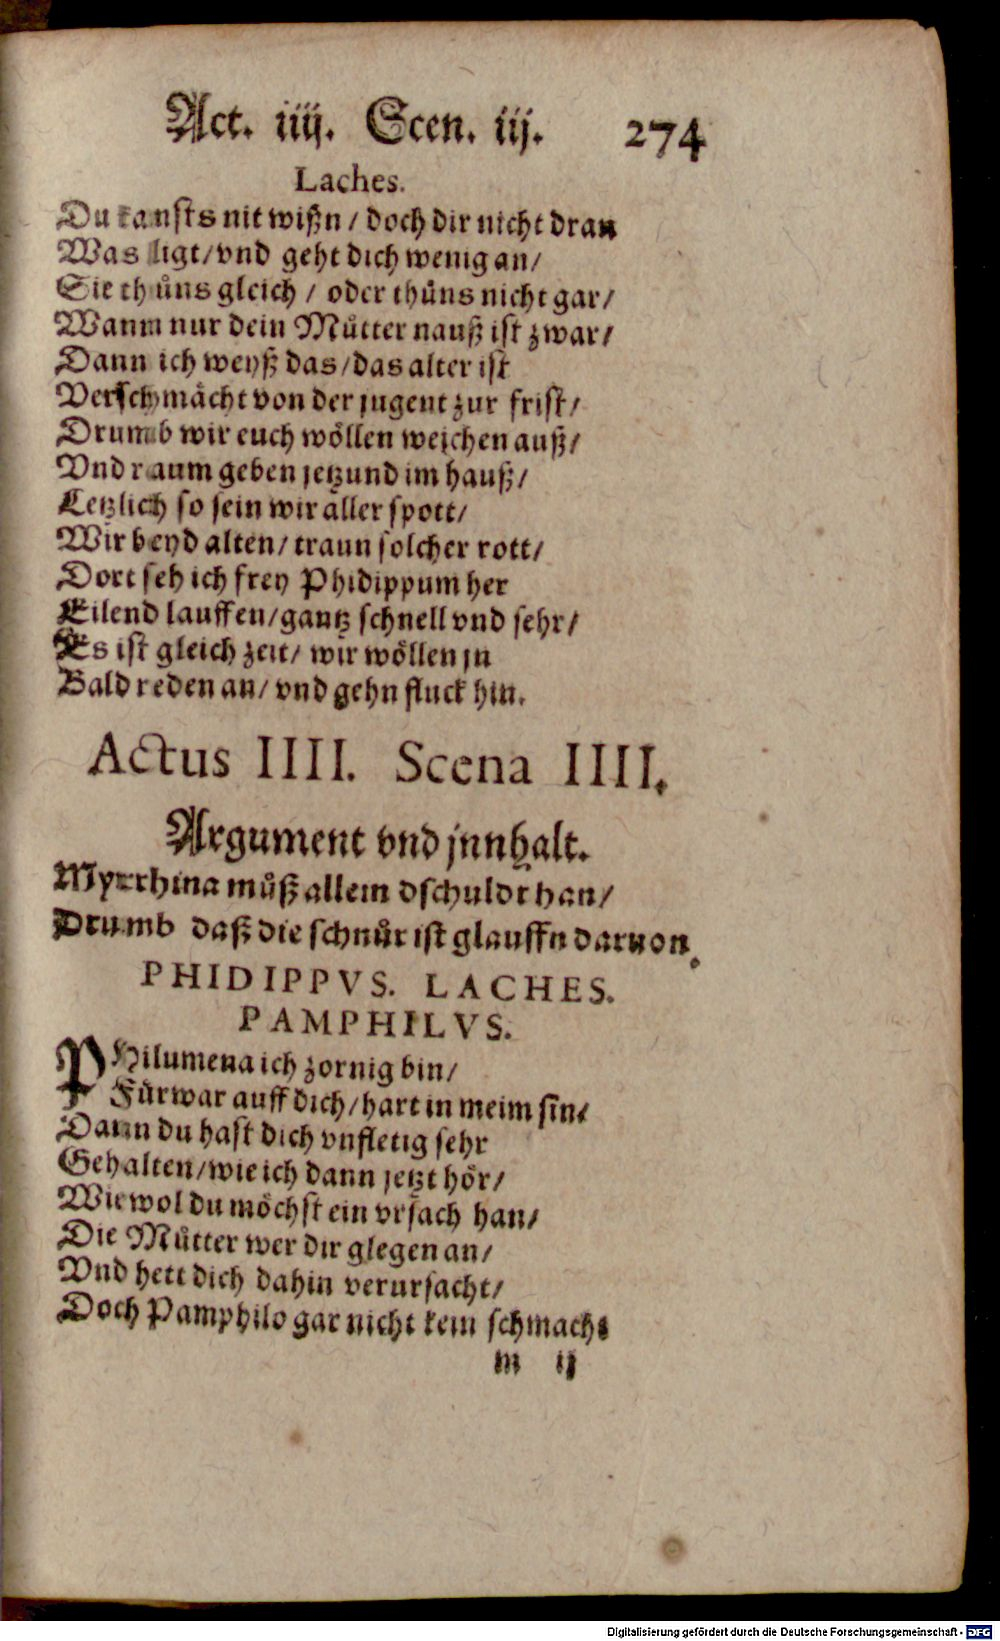 Act. iiij. Scen. iij. 274
Laches.
Du kansts nit wißn / doch dir nicht dran
Was ligt / vnd geht dich wenig an /
Sie thůns gleich / oder thůns nicht gar /
Wann nur dein Můtter nauß ist zwar /
Dann ich weyß das / das alter ist
Verschmächt von der jugent zur frist /
Drumb wir euch wöllen weichen auß /
Vnd raum geben jetzund im hauß /
Letzlich so sein wir aller spott /
Wir beyd alten / traun solcher rott /
Dort seh ich frey Phidippum her
Eilend lauffen / gantz schnell vnd sehr /
Es ist gleich zeit / wir wöllen jn
Bald reden an / vnd gehn fluck hin.
Actus IIII. Scena IIII.
Argument vnd jnnhalt.
Myrrhina můß allein dschuldt han /
Drumb daß die schnůr ist glauffn daruon.
PHIDIPPVS. LACHES.
PAMPHILVS.
PHilumena ich zornig bin /
Fürwar auff dich / hart in meim sin /
Dann du hast dich vnfletig sehr
Gehalten / wie ich dann jetzt hör /
Wiewol du möchst ein vrsach han /
Die Můtter wer dir glegen an /
Vnd hett dich dahin verursacht /
Doch Pamphilo gar nicht kein schmacht
m ij
Digitalisierung gefördert durch die Deutsche Forschungsgemeinschaft - DFG